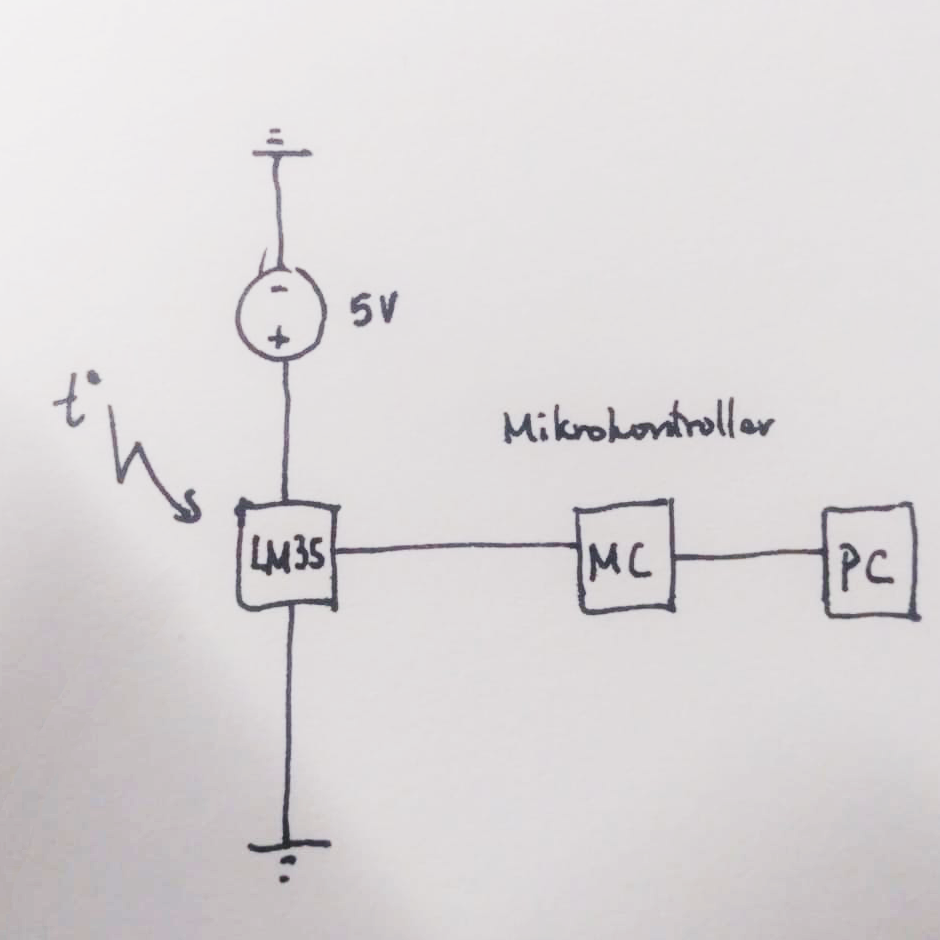 -
5V
+
t°
Mikrokontroller
LM35
MC
PC